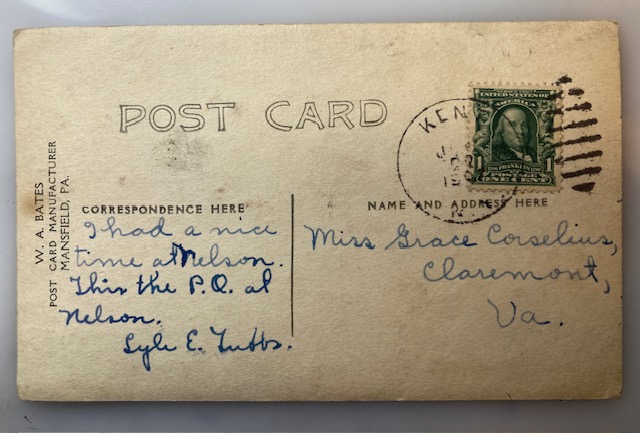 POST CARD
W. A. BATES
POST CARD MANUFACTURER
MANSFIELD, PA.
CORRESPONDENCE HERE
I had a nice
time at Nelson.
This the P.O. at
Nelson.
Lyle E. Tubbs.
UNITED STATES OF
AMERICA
1 1
FRANKLIN
POSTAGE
ONE CENT
NAME AND ADDRESS HERE
Miss Grace Corselius,
Claremont,
Va.